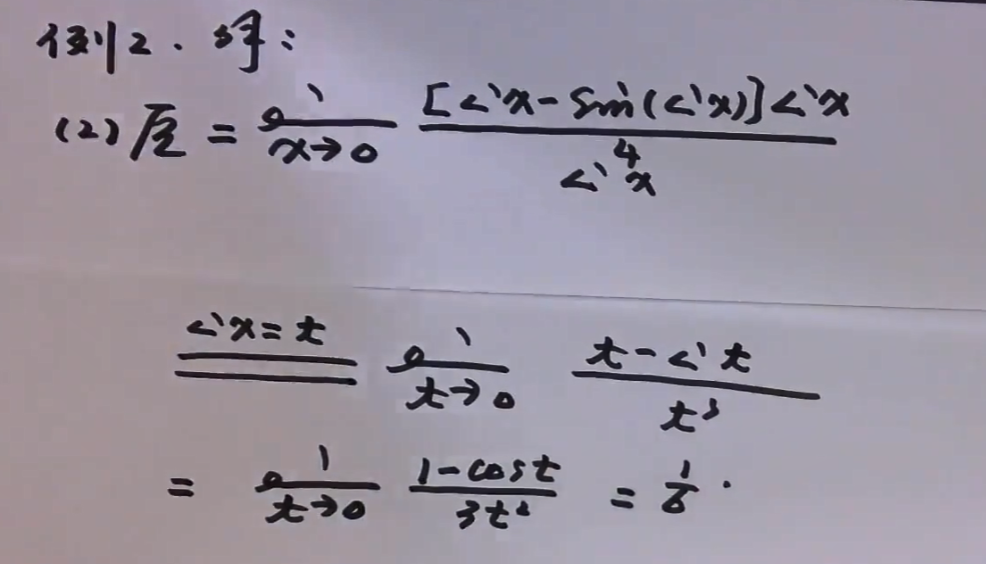 例2. 解:
(2) 原 = lim_{x→0} \frac{[sin x - sin(sin x)] sin x}{sin^4 x}
\xlongequal{sin x = t} lim_{t→0} \frac{t - sin t}{t^3}
= lim_{t→0} \frac{1 - cos t}{3t^2} = \frac{1}{6}.